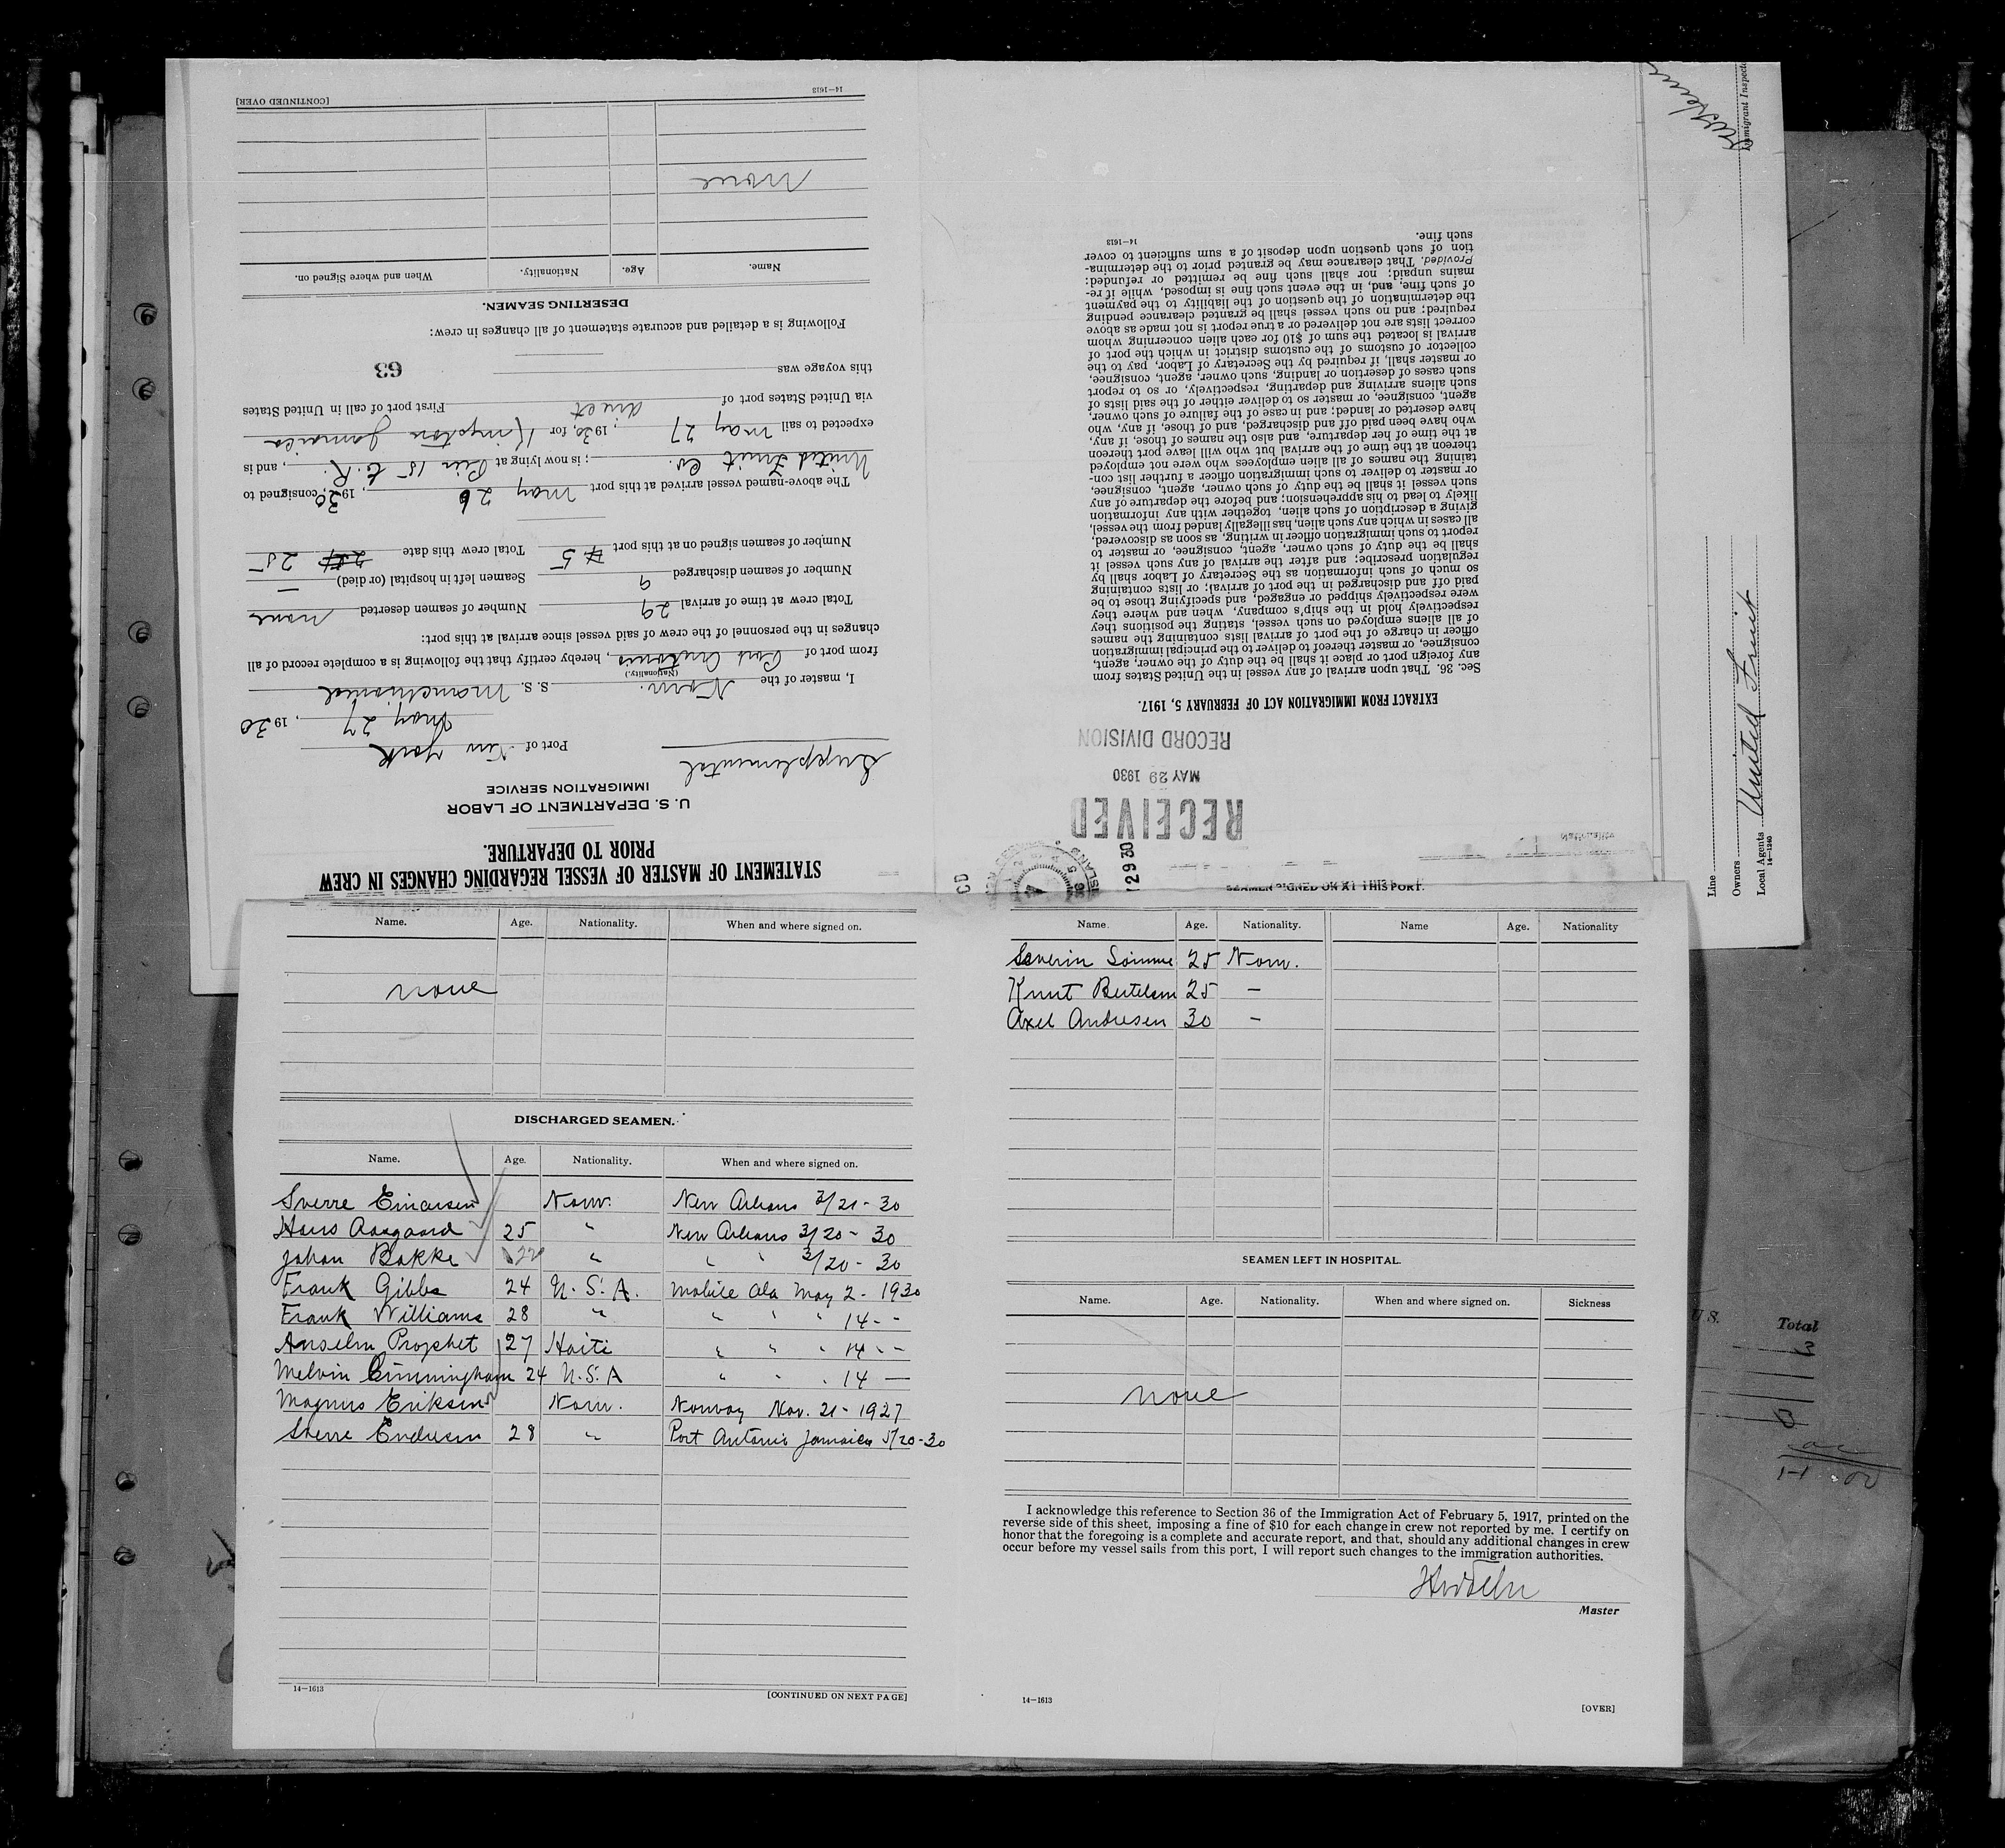 STATEMENT OF MASTER OF VESSEL REGARDING CHANGES IN CREW
PRIOR TO DEPARTURE.
U. S. DEPARTMENT OF LABOR
IMMIGRATION SERVICE
Supplemental
Port of New York
May 27, 1930
I, master of the Norw. S. S. Manchioneal
(Nationality.)
from port of Port Antonio, hereby certify that the following is a complete record of all
changes in the personnel of the crew of said vessel since arrival at this port:
Total crew at time of arrival 29 Number of seamen deserted none
Number of seamen discharged 9 Seamen left in hospital (or died) —
Number of seamen signed on at this port 5 Total crew this date 25
The above-named vessel arrived at this port May 26, 1930, consigned to
United Fruit Co.; is now lying at Pier 15 E. R., and is
expected to sail May 27, 1930, for Kingston Jamaica
via United States port of direct First port of call in United States
this voyage was
63
Following is a detailed and accurate statement of all changes in crew:
DESERTING SEAMEN.
Name. Age. Nationality. When and where Signed on.
None
14—1613 [CONTINUED OVER]
RECEIVED
MAY 29 1930
RECORD DIVISION
EXTRACT FROM IMMIGRATION ACT OF FEBRUARY 5, 1917.
Sec. 36. That upon arrival of any vessel in the United States from
any foreign port or place it shall be the duty of the owner, agent,
consignee, or master thereof to deliver to the principal immigration
officer in charge of the port of arrival lists containing the names
of all aliens employed on such vessel, stating the positions they
respectively hold in the ship's company, when and where they
were respectively shipped or engaged, and specifying those to be
paid off and discharged in the port of arrival; or lists containing
so much of such information as the Secretary of Labor shall by
regulation prescribe; and after the arrival of any such vessel it
shall be the duty of such owner, agent, consignee, or master to
report to such immigration officer in writing, as soon as discovered,
all cases in which any such alien, has illegally landed from the vessel,
giving a description of such alien, together with any information
likely to lead to his apprehension; and before the departure of any
such vessel it shall be the duty of such owner, agent, consignee,
or master to deliver to such immigration officer a further list con-
taining the names of all alien employees who were not employed
thereon at the time of the arrival but who will leave port thereon
at the time of her departure, and also the names of those, if any,
who have been paid off and discharged, and of those, if any, who
have deserted or landed; and in case of the failure of such owner,
agent, consignee, or master so to deliver either of the said lists of
such aliens arriving and departing, respectively, or so to report
such cases of desertion or landing, such owner, agent, consignee,
or master shall, if required by the Secretary of Labor, pay to the
collector of customs of the customs district in which the port of
arrival is located the sum of $10 for each alien concerning whom
correct lists are not delivered or a true report is not made as above
required; and no such vessel shall be granted clearance pending
the determination of the question of the liability to the payment
of such fine, and, in the event such fine is imposed, while it re-
mains unpaid; nor shall such fine be remitted or refunded:
Provided, That clearance may be granted prior to the determina-
tion of such question upon deposit of a sum sufficient to cover
such fine.
14—1613
Immigrant Inspector
Line
Owners United Fruit
Local Agents
14—1240
Name. Age. Nationality. When and where signed on.
none
DISCHARGED SEAMEN.
Name. Age. Nationality. When and where signed on.
Sverre Einarsen Norw. New Orleans 3/21 - 30
Hans Aasgaard 25 " New Orleans 3/20 - 30
Johan Bakke 22 " " " 3/20 - 30
Frank Gibbs 24 U. S. A. Mobile Ala May 2 - 1930
Frank Williams 28 " " " " 14 - -
Anselm Prophet 27 Haiti " " " 14 - -
Melvin Cunningham 24 U. S. A " " " 14 —
Magnus Eriksen Norw. Norway Nov. 21 - 1927
Sverre Endresen 28 " Port Antonio Jamaica 5/20 - 30
14—1613 [CONTINUED ON NEXT PAGE]
SEAMEN SIGNED ON AT THIS PORT.
Name. Age. Nationality. Name Age. Nationality
Severin Sömme 25 Norw.
Knut Bertelsen 25 —
Axel Andresen 30 —
SEAMEN LEFT IN HOSPITAL.
Name. Age. Nationality. When and where signed on. Sickness
none
I acknowledge this reference to Section 36 of the Immigration Act of February 5, 1917, printed on the
reverse side of this sheet, imposing a fine of $10 for each change in crew not reported by me. I certify on
honor that the foregoing is a complete and accurate report, and that, should any additional changes in crew
occur before my vessel sails from this port, I will report such changes to the immigration authorities.
Master
14—1613 [OVER]
U.S. Total
3